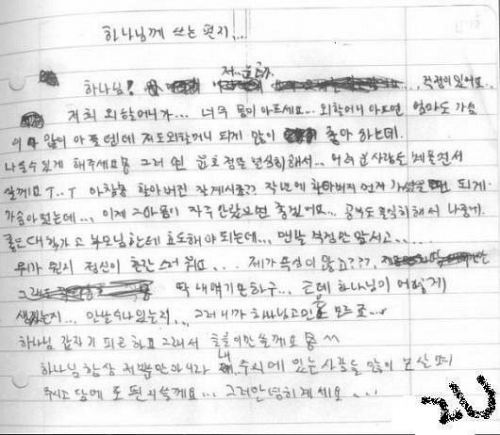 하나님께 쓰는 편지...
하나님! 저..윤호가.. 걱정이 있어요..
저희 외할머니가... 너무 몸이 아프세요... 외할머니 아프면 엄마도 가슴
이 많이 아플텐데 저도 외할머니 되게 많이 좋아 하는데.
나을수 있게 해주세요 그러면 윤호 정말 열심히 해서.. 어려운 사람들 체온 언서
살께요 T..T 아참참 할아버진 잘 계시죠?? 작년에 할아버지 먼저 되게
가슴아팠는데... 이제 그만 몸이 자주 안 았으면 좋겠어요... 공부도 열심히 해서 나중에.
좋은 대학가고 부모님한테 효도해야 되는데... 맨날 걱정만 앞서고....
뭐가 뭔지 정신이 혼란 스러 워요... 제가 욕심이 많죠???,
그래도 딱 내 얘기만 하구... 근데 하나님이 어떻게
생겼는지... 만날 수나 있는지... 그러니까 하나님 모르죠...
하나님 갑자기 피곤 하고 그래서 글을 이만 쓸께요 ^^
하나님 항상 저뿐만 아니라 내 주시에 있는 사람들 많이 보살펴
주시고 담에 또 편지쓸께요... 그러만 안녕히 계세요...